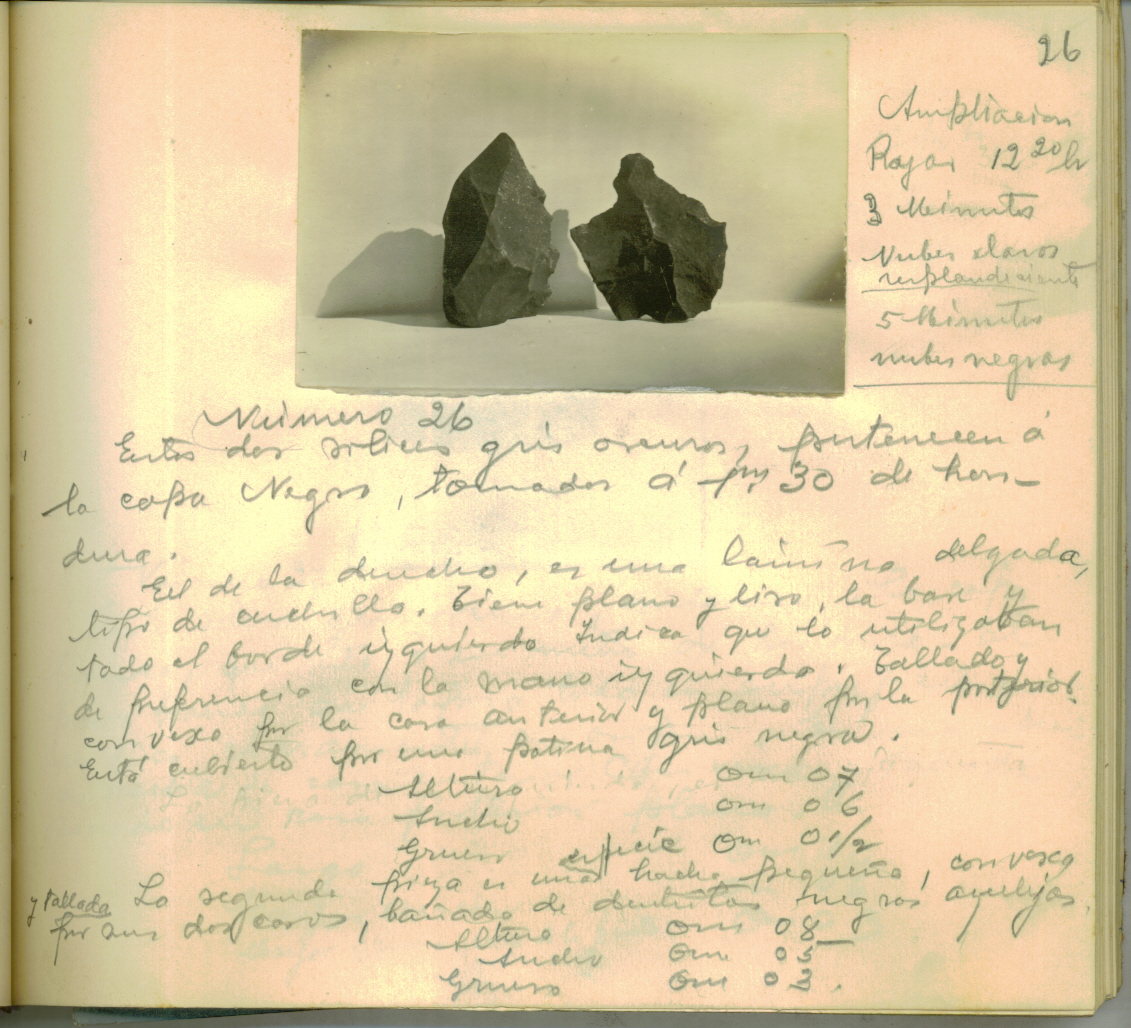 26
Ampliacion
Rayos 12 20 h
3 Minutos
Nubes claras
resplandeciente
5 Minutos
nubes negras
Número 26
Estos dos silices gris oscuros, pertenecen á
la capa Negra, tomados á 30 de hon-
dura.
El de la derecha, es una lamina delgada,
tipo de cuchillo. Tiene plano y liso, la base y
todo el borde izquierdo Indica que lo utilizaban
de preferencia con la mano izquierda. Tallado y
convexo por la cara anterior y plano por la posterior.
Está cubierto por una patina gris negra.
Altura 0m 07
Ancho 0m 06
Grueso 0m 01/2
La segunda pieza es una especie hacha pequeña, convexa
y tallada por sus dos caras, bañada de dentritas negros azulejas.
Altura 0m 08
Ancho 0m 05
Grueso 0m 03.